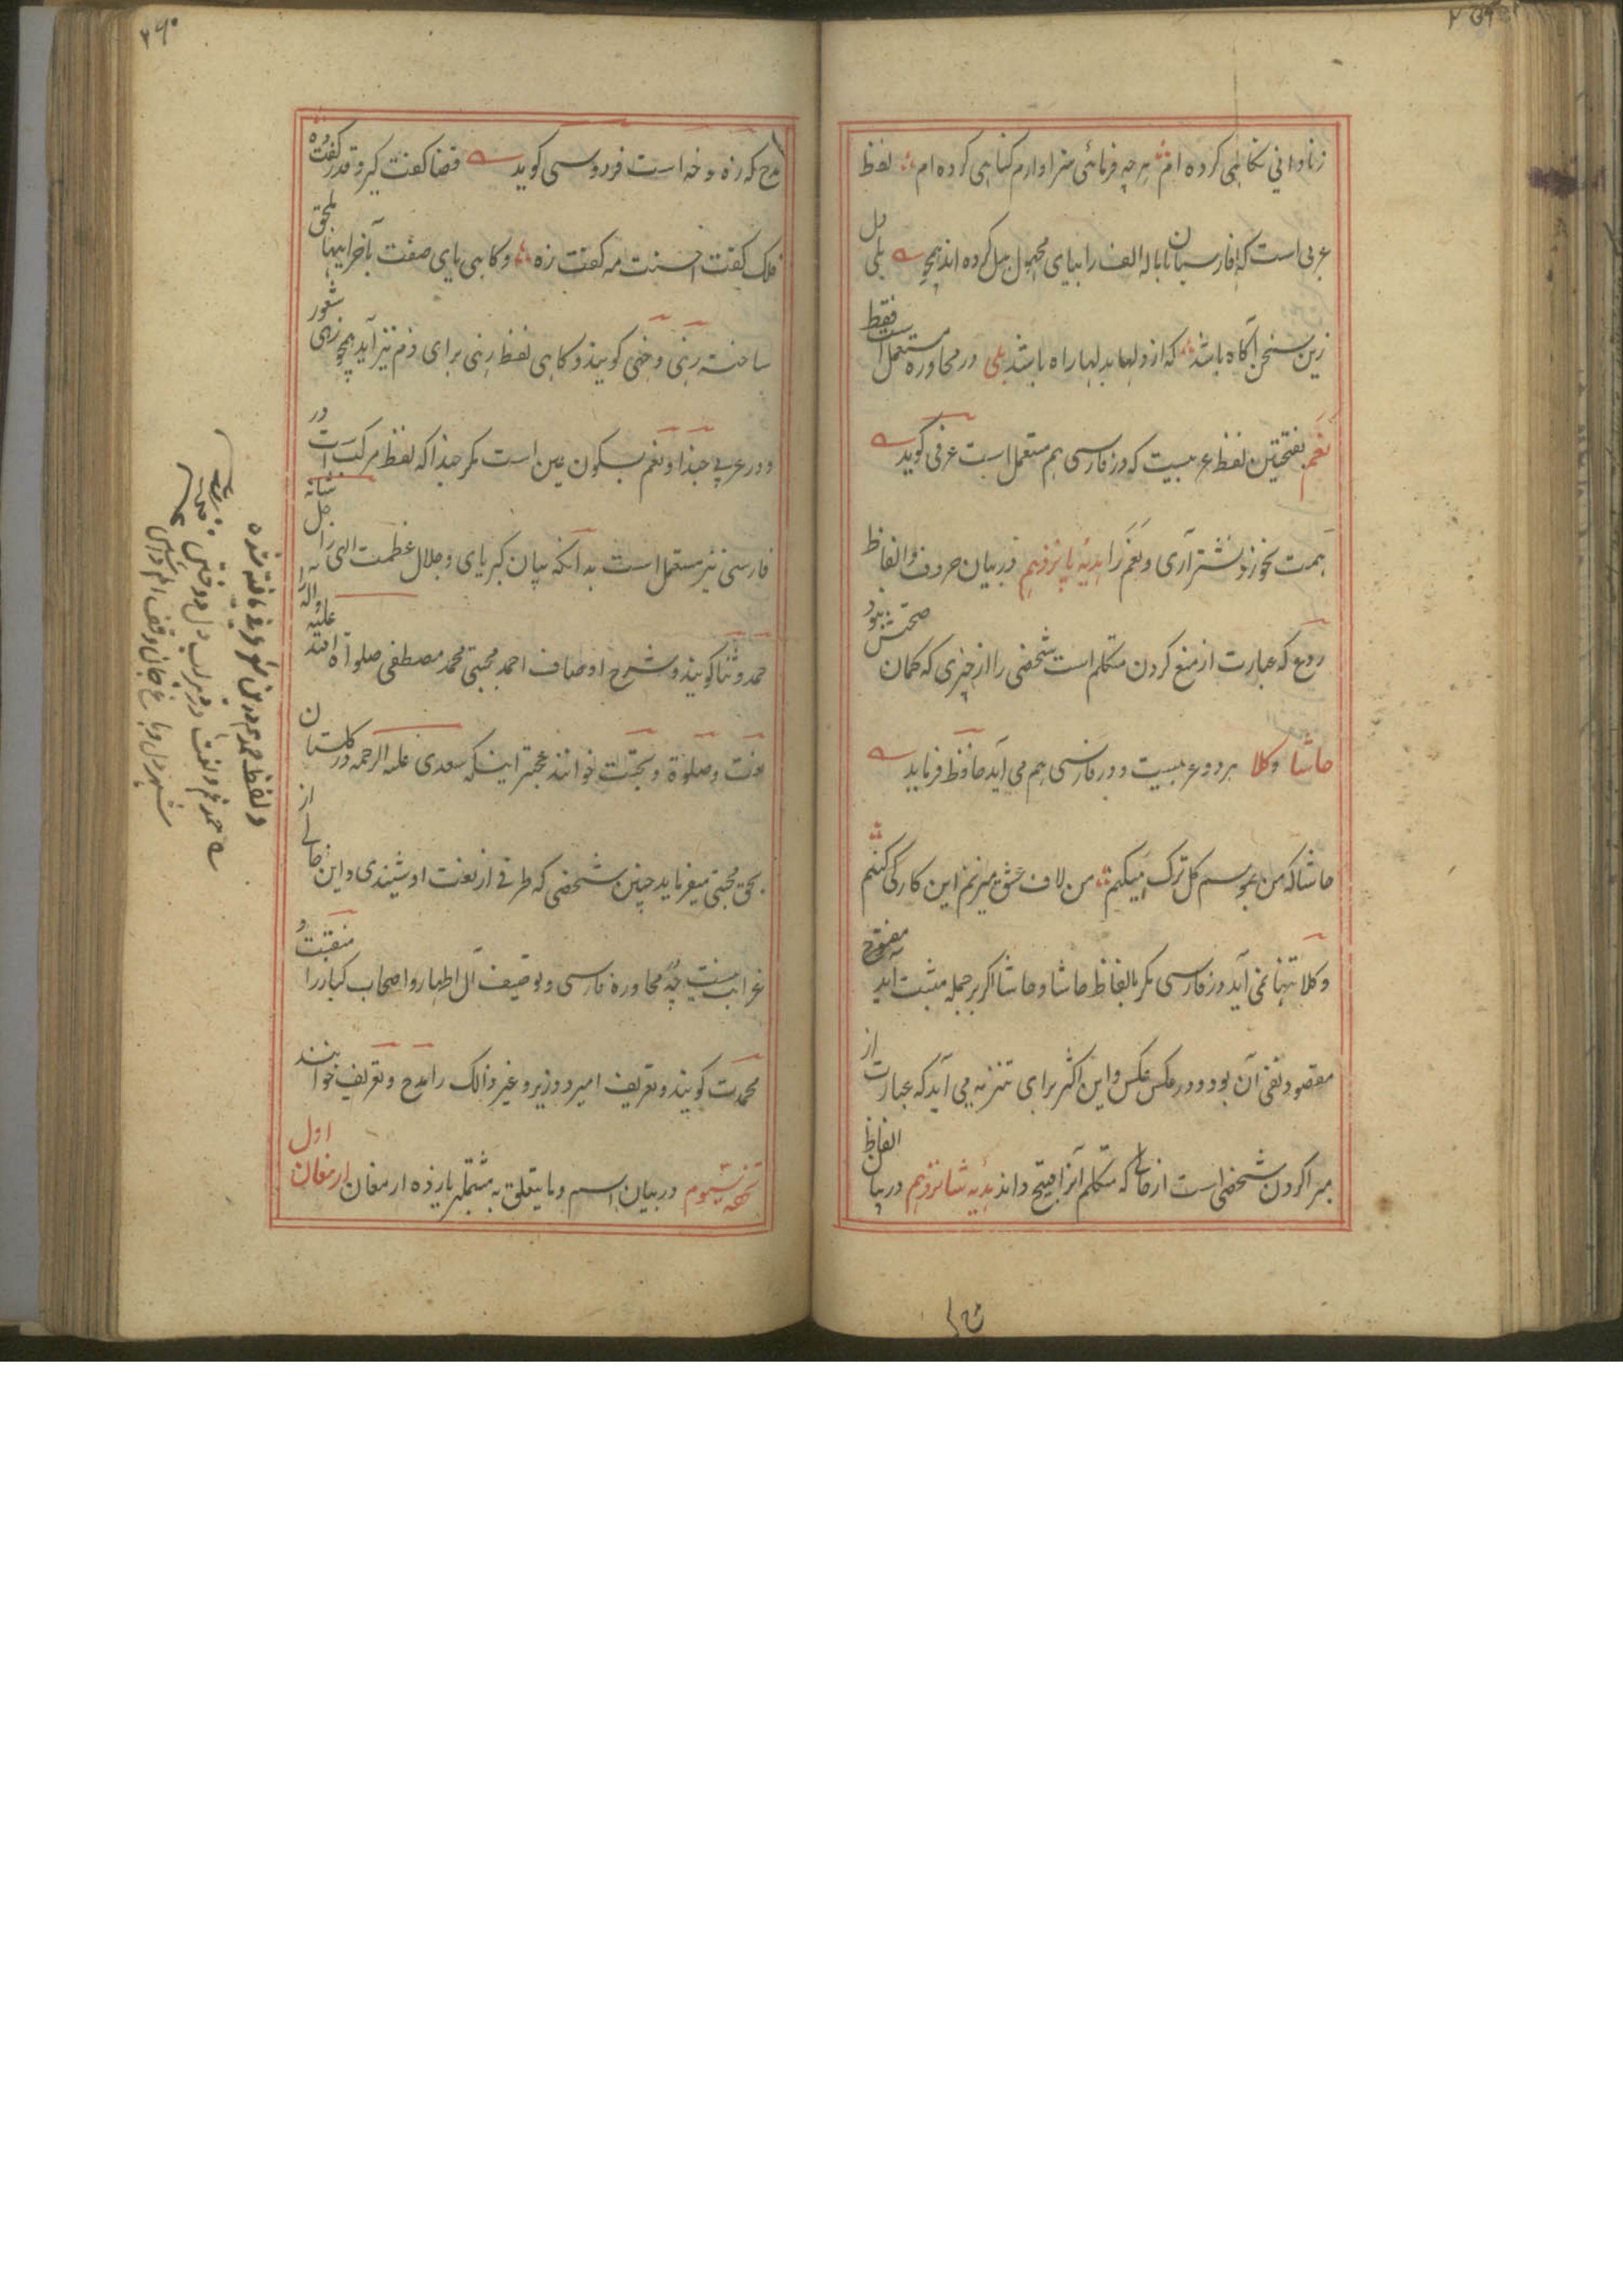 زنادانی تکاهلی کرده ام هر چه فرمائی سزاوارم کناهی کرده ام لفظ
عربی است که فارسیان باماله الف را بیای مجهول بدل کرده اند همچو بلی
زین سخن آکاه باشد که از دلها بدلها راه باشد بلی در محاوره مستعمل است فقط
نَعَم بفتحتین لفظ عربیست که در فارسی هم مستعمل است عرفی کوید
همت نخورد نشتر آری و نعم را هدیهٔ پانزدهم در بیان حروف و الفاظ
ردع که عبارت از منع کردن متکلم است شخصی را از چیزی که کمان صحتش بود
حاشا وکلا هر دو عربیست و در فارسی هم می آید حافظ فرماید
حاشا که من بموسم کل ترک می کنم من لاف عشق میزنم این کار کی کنم
وکلا تنها نمی آید در فارسی مکر بالفاظ حاشا و حاشا اکر بر جمله مثبت آید
مقصود نفی آن بود و در عکس عکس و این اکثر برای تنزیه می آید که عبارت از
مبرا کردن شخصی است از حالی که متکلم آنرا قبیح داند هدیه شانزدهم در بیان الفاظ
مدح که زه و خه است فردوسی کوید قضا کفت کیر و قدر کفت ده
فلک کفت احسنت مه کفت زه و کاهی یای صفت بآخر اینها ملحق
ساخته زهی و خهی کویند و کاهی لفظ زهی برای ذم نیز آید همچو زهی شعور
و در عربی حبذا و نعم بسکون عین است مکر حبذا که لفظ مرکب است در
فارسی نیز مستعمل است بدانکه بیان کبریای و جلال عظمت الهی را جل شانه
حمد و ثنا کویند و شرح اوصاف احمد مجتبی محمد مصطفی صلواة الله علیه و آله را
نعت و صلوة و تحیّات خوانند عجبتر اینکه سعدی علیه الرحمه در کلستان
بحق مجتبی میفرماید چنین شخصی که طرفی از نعت او شنیدی و این خالی از
غرابت نیست چه محاوره فارسی و توصیف آل اطهار و اصحاب کبار را منقبت و
محمدت کویند و تعریف امیر و وزیر و غیر ذالک را مدح و تعریف خوانند
تحفه سیوم در بیان اسم و ما یتعلق به مشتمل بر یازده ارمغان ارمغان اول